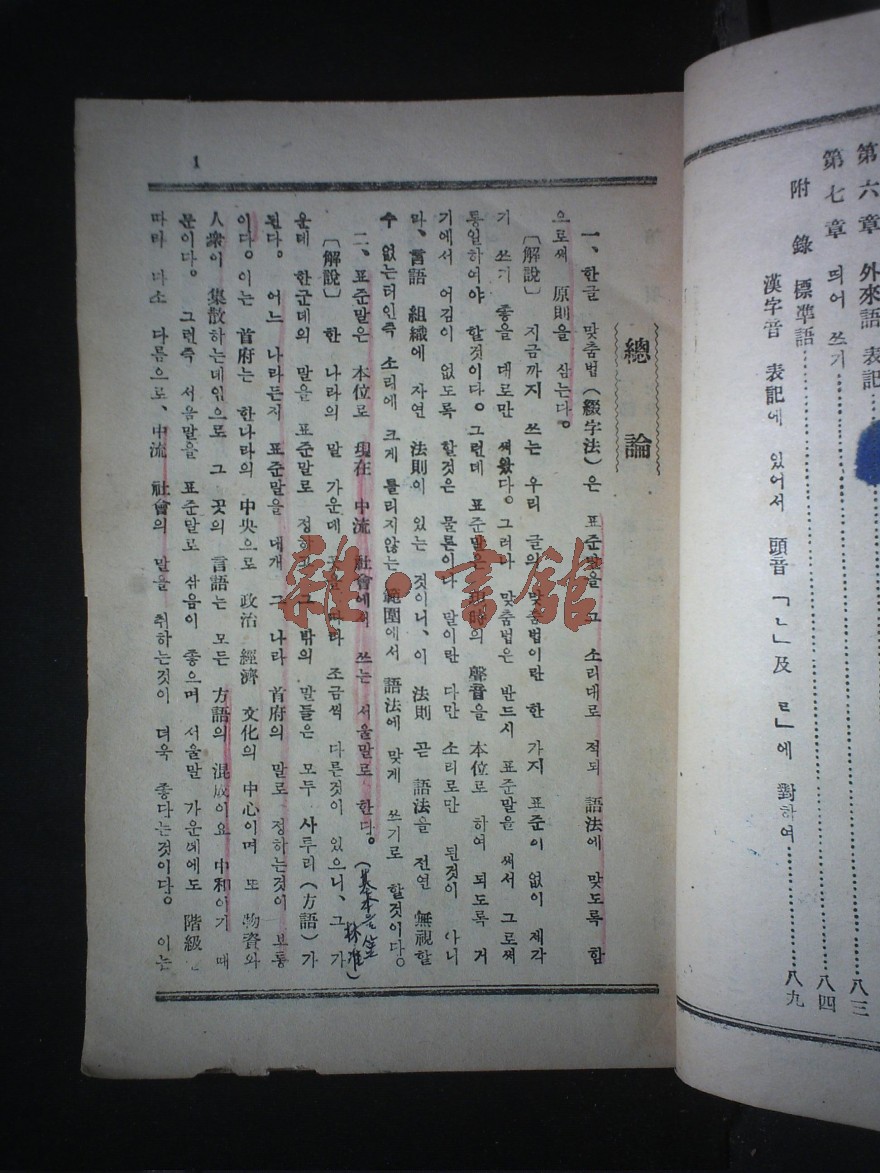 第六章 外來語 表記 八三
第七章 띄어 쓰기 八四
附 錄 標準語
漢字音 表記에 있어서 頭音「ㄴ」及 ㄹ」에 對하여 八九
1
總 論
一、한글 맞춤법(綴字法)은 표준말을 그 소리대로 적되 語法에 맞도록 함
으로써 原則을 삼는다。
〔解說〕 지금까지 쓰는 우리 글의 맞춤법이란 한 가지 표준이 없이 제각
기 쓰기 좋을 대로만 써왔다。그러나 맞춤법은 반드시 표준말을 써서 그로써
통일하여야 할것이다。그런데 표준말은 現時의 聲音을 本位로 하여 되도록 거
기에서 어김이 없도록 할것은 물론이나 말이란 다만 소리로만 된것이 아니
라、言語 組織에 자연 法則이 있는 것이니、이 法則 곧 語法을 전연 無視할
수 없는터인즉 소리에 크게 틀리지않는 範圍에서 語法에 맞게 쓰기로 할것이다。
二、표준말은 本位로 現在 中流 社會에서 쓰는 서울말로 한다。(基本 林准)
〔解說〕 한 나라의 말 가운데 곳을 따라 조금씩 다른것이 있으니、그 가
운데 한군데의 말을 표준말로 정하고 그 밖의 말들은 모두 사투리(方語)가
된다。어느 나라든지 표준말을 대개 그 나라 首府의 말로 정하는것이 보통
이다。이는 首府는 한나라의 中央으로 政治 經濟 文化의 中心이며 또 物資와
人衆이 集散하는데임으로 그 곳의 言語는 모든 方語의 混成이요 中和이기 때
문이다。그런즉 서울말을 표준말로 삼음이 좋으며 서울말 가운데에도 階級
따라 다소 다름으로、中流 社會의 말을 취하는것이 더욱 좋다는것이다。이는
雜·書館